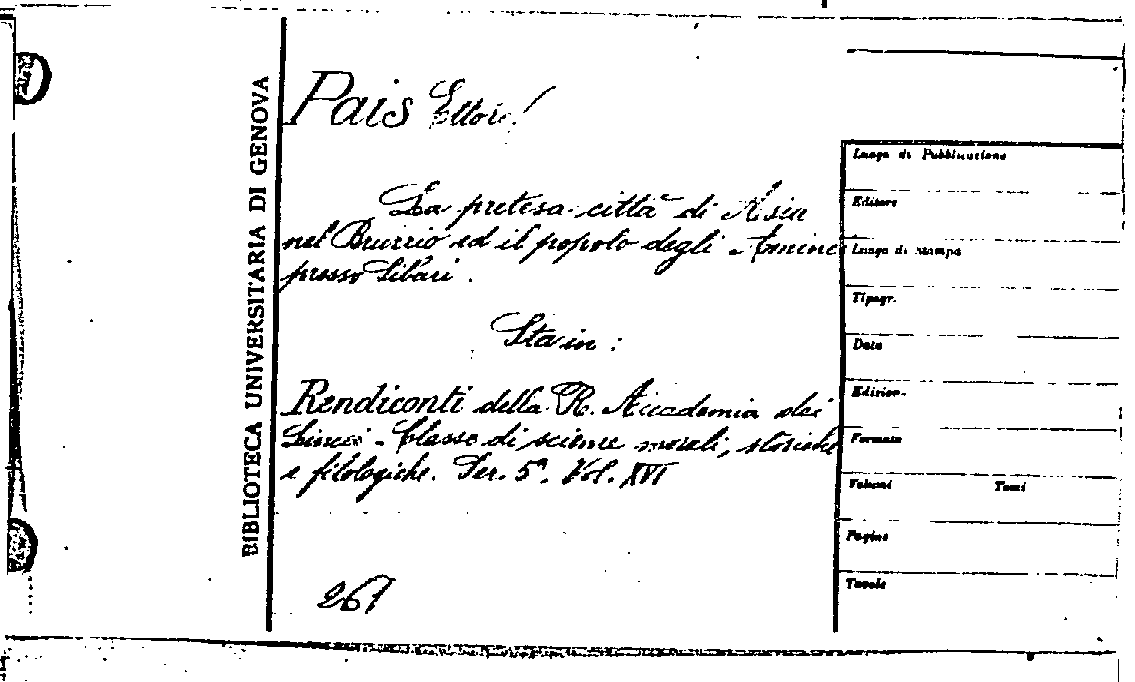 BIBLIOTECA UNIVERSITARIA DI GENOVA
Pais Ettore
La pretesa città di Asia
nel Bruzzio ed il popolo degli Aminei
presso Sibari.
Sta in:
Rendiconti della R. Accademia dei
Lincei - Classe di scienze morali, storiche
e filologiche. Ser. 5ª. Vol. XVI
267
Luogo di Pubblicazione
Editore
Luogo di stampa
Tipogr.
Data
Edizion.
Formato
Volumi Tomi
Pagine
Tavole